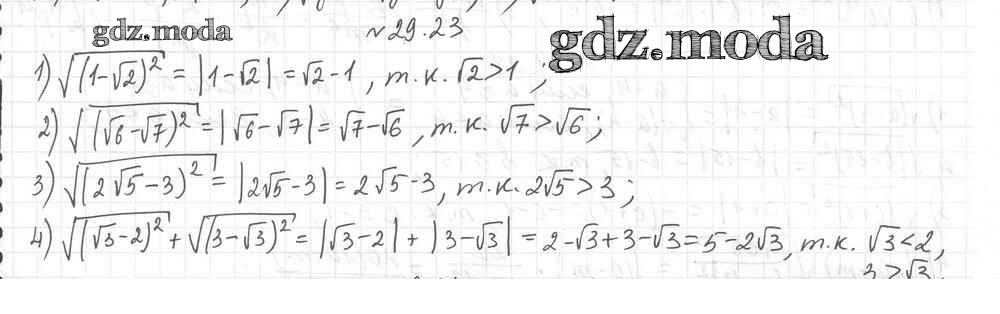 gdz.moda №29.23 gdz.moda
1) √(1-√2)² = |1-√2| = √2-1, т.к. √2>1 ;
2) √(√6-√7)² = |√6-√7| = √7-√6, т.к. √7>√6;
3) √(2√5-3)² = |2√5-3| = 2√5-3, т.к. 2√5>3 ;
4) √(√3-2)² + √(3-√3)² = |√3-2| + |3-√3| = 2-√3+3-√3=5-2√3, т.к. √3<2,
3>√3